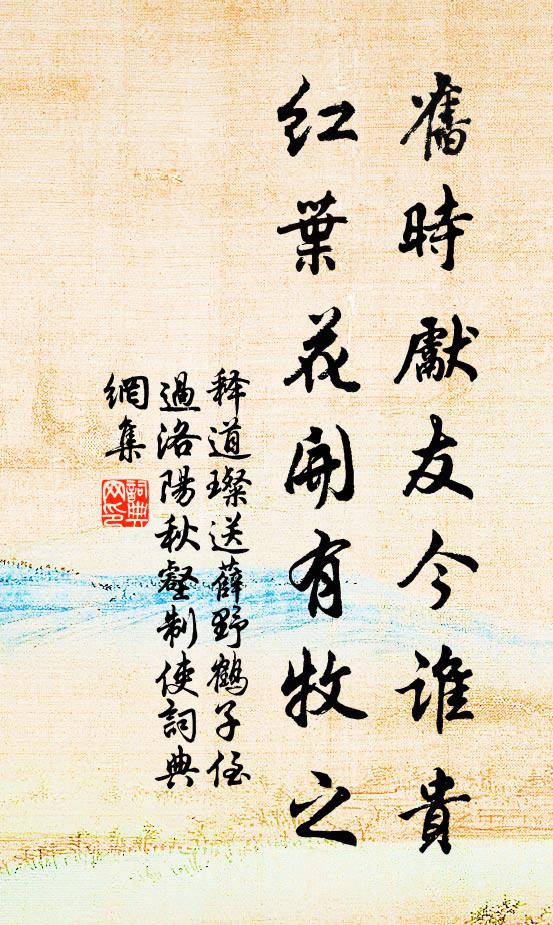 舊時獻友今誰貴
紅葉花開有牧之
釋道璨送薛野鶴子侄
過洛陽秋壑制使詞典
網集
詞典網印